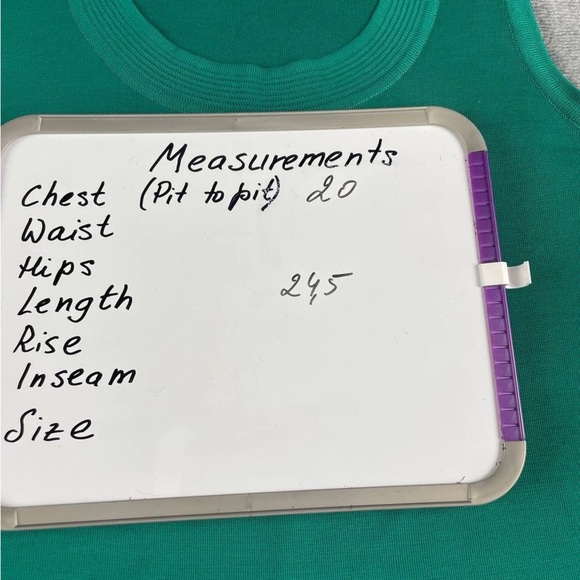 Measurements
Chest (Pit to pit) 20
Waist
Hips
Length 24,5
Rise
Inseam
Size